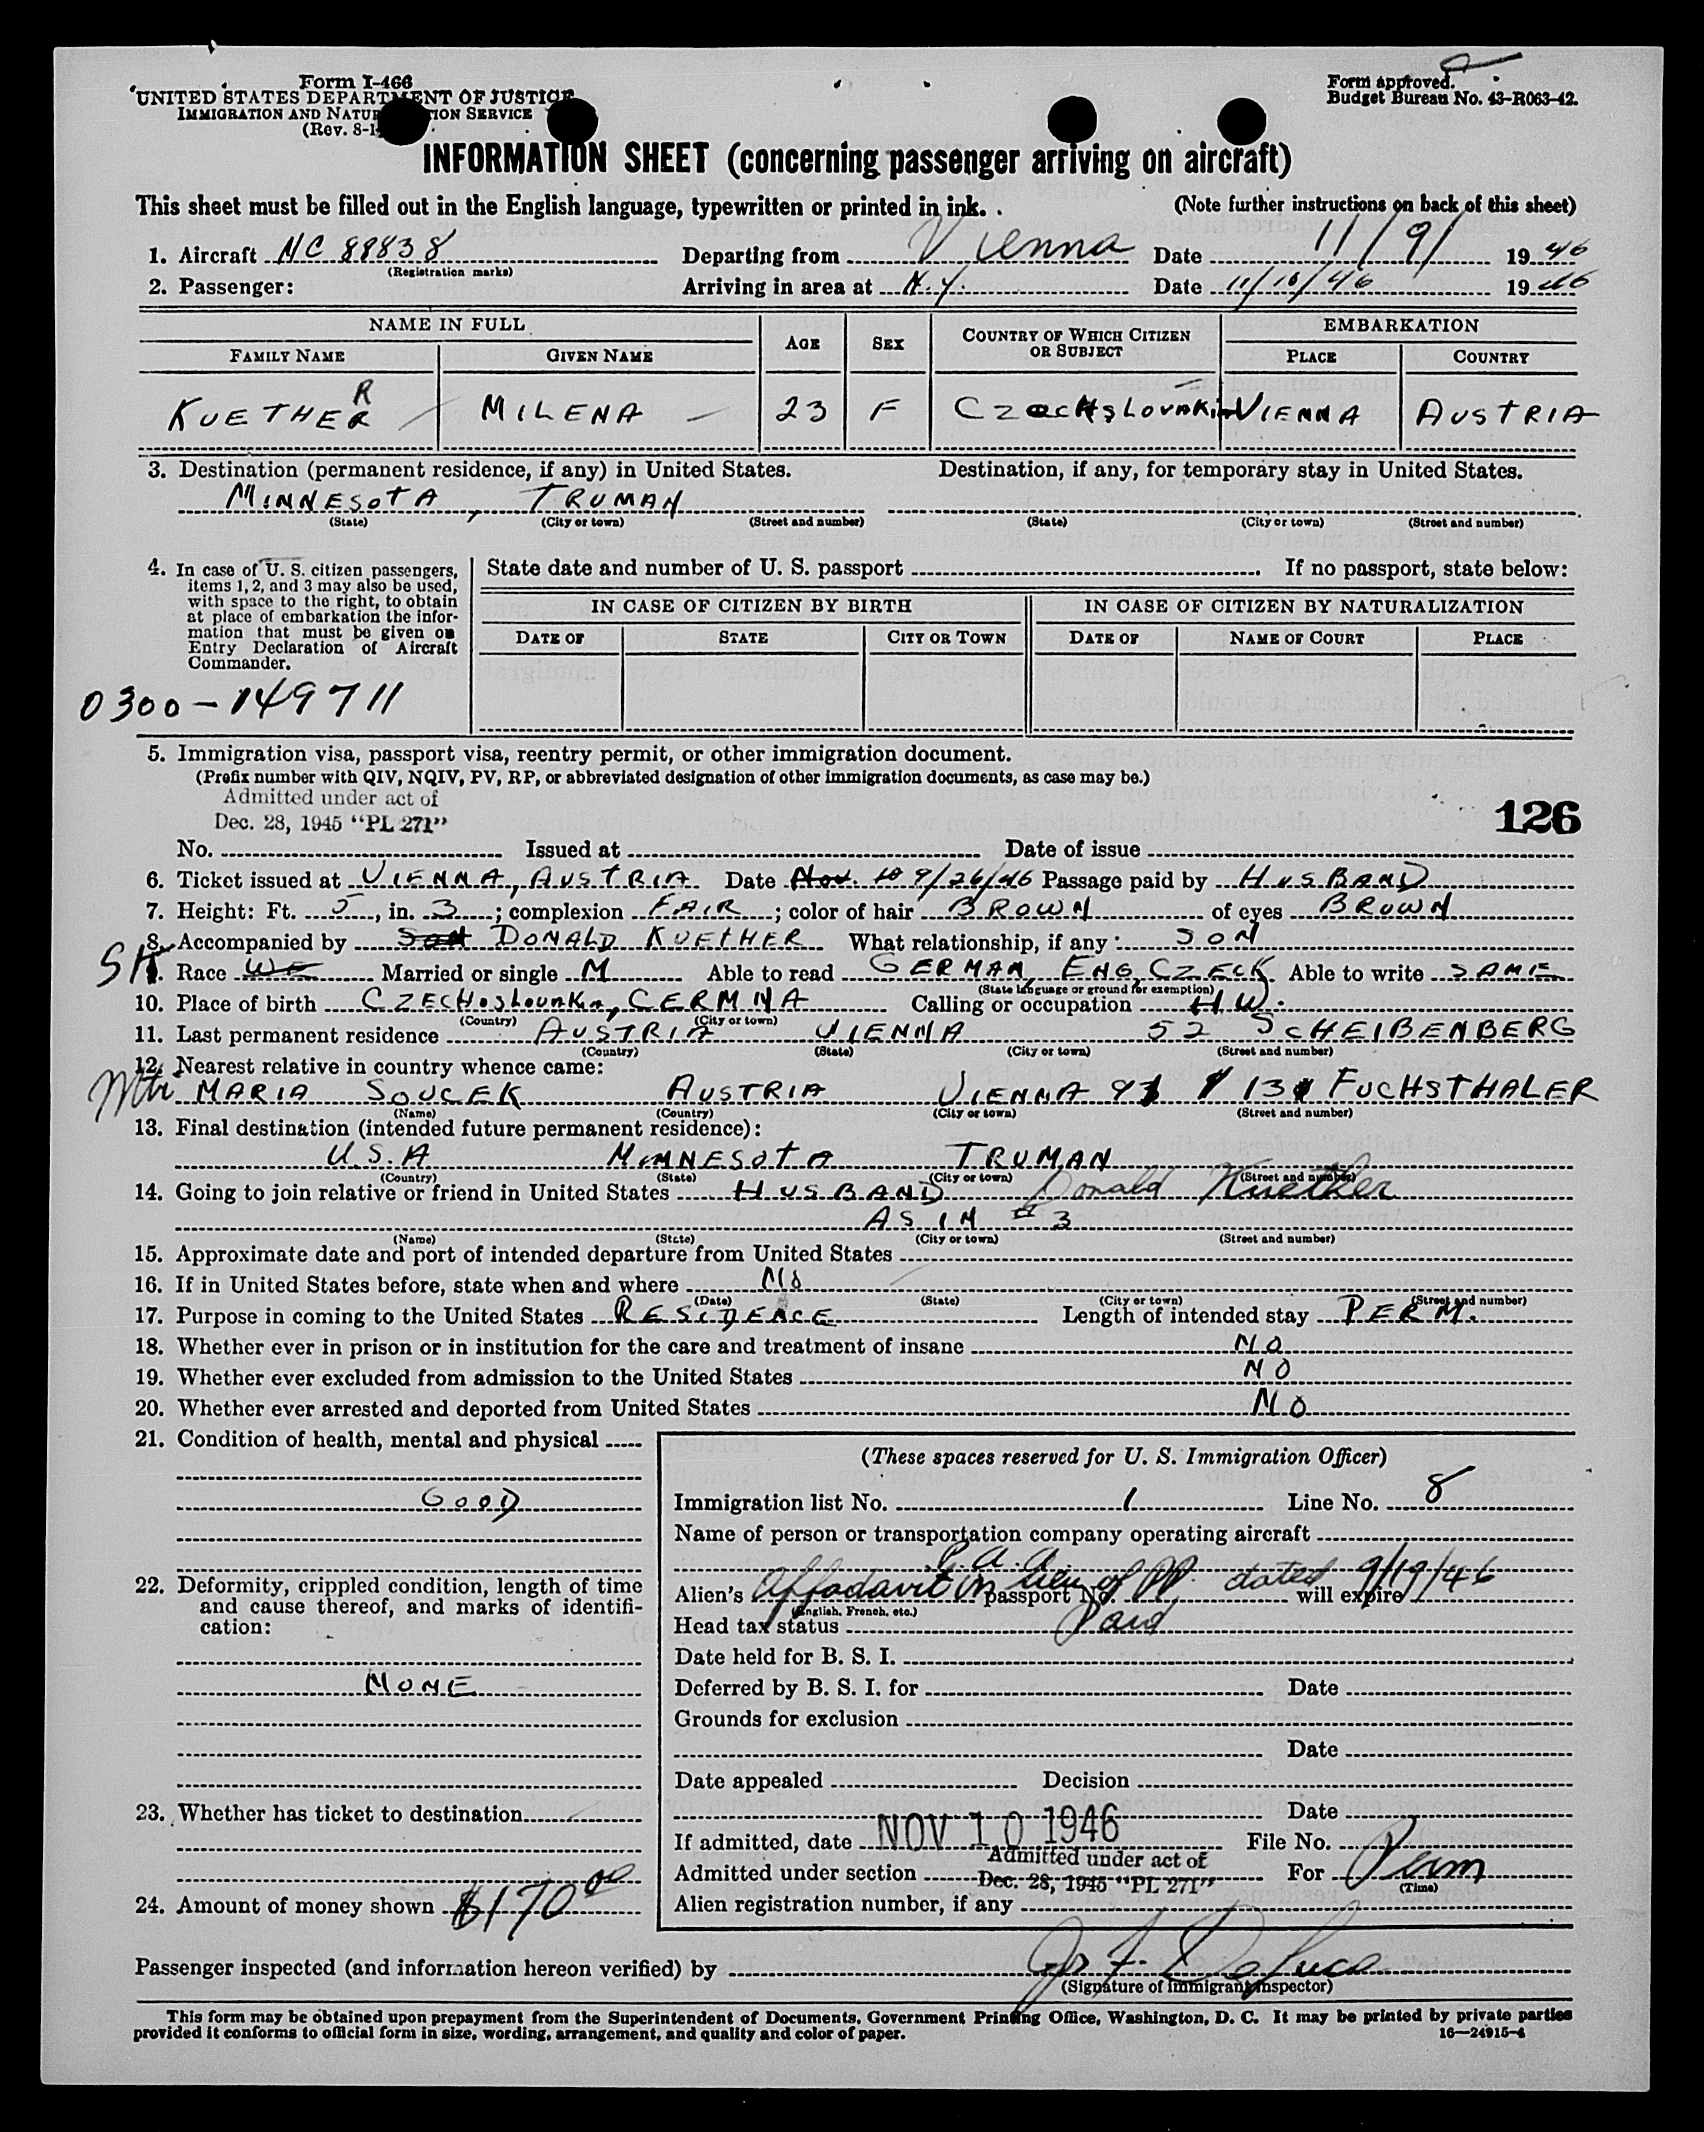 Form I-466
UNITED STATES DEPARTMENT OF JUSTICE
IMMIGRATION AND SERVICE
(Rev.
Form approved.
Budget Bureau No. 43-R063-42.
INFORMATION SHEET (concerning passenger arriving on aircraft)
This sheet must be filled out in the English language, typewritten or printed in ink. (Note further instructions on back of this sheet)
1. Aircraft NC 88838 Departing from Vienna Date 11/9/ 1946
(Registration marks)
2. Passenger: Arriving in area at N.Y. Date 11/10/46 1946
NAME IN FULL AGE SEX COUNTRY OF WHICH CITIZEN OR SUBJECT EMBARKATION
FAMILY NAME GIVEN NAME PLACE COUNTRY
R
KUETHER MILENA 23 F VIENNA AUSTRIA
3. Destination (permanent residence, if any) in United States. Destination, if any, for temporary stay in United States.
MINNESOTA, TRUMAN
(State) (City or town) (Street and number) (State) (City or town) (Street and number)
4. In case of U. S. citizen passengers, items 1, 2, and 3 may also be used, with space to the right, to obtain at place of embarkation the information that must be given on Entry Declaration of Aircraft Commander.
State date and number of U. S. passport If no passport, state below:
IN CASE OF CITIZEN BY BIRTH IN CASE OF CITIZEN BY NATURALIZATION
DATE OF STATE CITY OR TOWN DATE OF NAME OF COURT PLACE
0300-149711
5. Immigration visa, passport visa, reentry permit, or other immigration document.
(Prefix number with QIV, NQIV, PV, RP, or abbreviated designation of other immigration documents, as case may be.)
Admitted under act of
Dec. 28, 1945 "PL 271"
126
No. Issued at Date of issue
6. Ticket issued at VIENNA, AUSTRIA Date Nov. 10 9/26/46 Passage paid by HUSBAND
7. Height: Ft. 5, in. 3; complexion FAIR; color of hair BROWN of eyes BROWN
8. Accompanied by Son DONALD KUETHER What relationship, if any: SON
9. Race Married or single M Able to read GERMAN, ENG, CZECK. Able to write SAME
(State language or ground for exemption)
10. Place of birth CERMNA Calling or occupation H.W.
(Country) (City or town)
11. Last permanent residence AUSTRIA VIENNA 52 SCHEIBENBERG
(Country) (State) (City or town) (Street and number)
12. Nearest relative in country whence came:
Mtr MARIA SOUCEK AUSTRIA VIENNA FUCHSTHALER
(Name) (Country) (City or town) (Street and number)
13. Final destination (intended future permanent residence):
U.S.A MINNESOTA TRUMAN
(Country) (State) (City or town) (Street and number)
14. Going to join relative or friend in United States HUSBAND Donald Kuether
AS IN # 3
(Name) (State) (City or town) (Street and number)
15. Approximate date and port of intended departure from United States
16. If in United States before, state when and where No
(Date) (State) (City or town) (Street and number)
17. Purpose in coming to the United States RESIDENCE Length of intended stay PERM.
18. Whether ever in prison or in institution for the care and treatment of insane NO
19. Whether ever excluded from admission to the United States NO
20. Whether ever arrested and deported from United States NO
21. Condition of health, mental and physical
GOOD
22. Deformity, crippled condition, length of time and cause thereof, and marks of identification:
NONE
23. Whether has ticket to destination
24. Amount of money shown $170 00
(These spaces reserved for U. S. Immigration Officer)
Immigration list No. 1 Line No. 8
Name of person or transportation company operating aircraft
Alien's Affadavit in lieu of PP. dated 9/19/46 passport No. will expire
(English, French, etc.)
Head tax status Paid
Date held for B. S. I.
Deferred by B. S. I. for Date
Grounds for exclusion
Date
Date appealed Decision
Date
If admitted, date NOV 10 1946 File No.
Admitted under section Admitted under act of Dec. 28, 1945 "PL 271" For Perm
(Time)
Alien registration number, if any
Passenger inspected (and information hereon verified) by
(Signature of immigrant inspector)
This form may be obtained upon prepayment from the Superintendent of Documents, Government Printing Office, Washington, D. C. It may be printed by private parties
provided it conforms to official form in size, wording, arrangement, and quality and color of paper. 16—24915-4